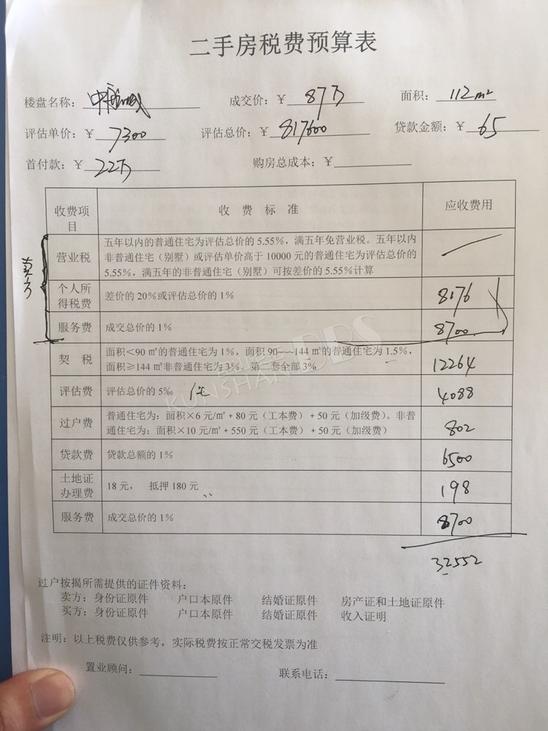 二手房税费预算表
楼盘名称: 成交价:¥ 87万 面积: 112m²
评估单价:¥ 7300 评估总价:¥ 817600 贷款金额:¥ 65
首付款:¥ 22万 购房总成本:¥
收费项目 收费标准 应收费用
卖方
营业税 五年以内的普通住宅为评估总价的5.55%,满五年免营业税。五年以内
非普通住宅(别墅)或评估单价高于10000元的普通住宅为评估总价的
5.55%,满五年的非普通住宅(别墅)可按差价的5.55%计算
个人所得税费 差价的20%或评估总价的1% 8176
服务费 成交总价的1% 8700
契税 面积<90㎡的普通住宅为1%,面积90——144㎡的普通住宅为1.5%,
面积≥144㎡非普通住宅为3%,第二套全部3% 12264
评估费 评估总价的5% 4088
过户费 普通住宅为:面积×6元/㎡+80元(工本费)+50元(加级费)。非普
通住宅为:面积×10元/㎡+550元(工本费)+50元(加级费) 802
贷款费 贷款总额的1% 6500
土地证办理费 18元, 抵押180元 198
服务费 成交总价的1% 8700
32552
过户按揭所需提供的证件资料:
卖方:身份证原件 户口本原件 结婚证原件 房产证和土地证原件
买方:身份证原件 户口本原件 结婚证原件 收入证明
注明:以上税费仅供参考,实际税费按正常交税发票为准
置业顾问: 联系电话: